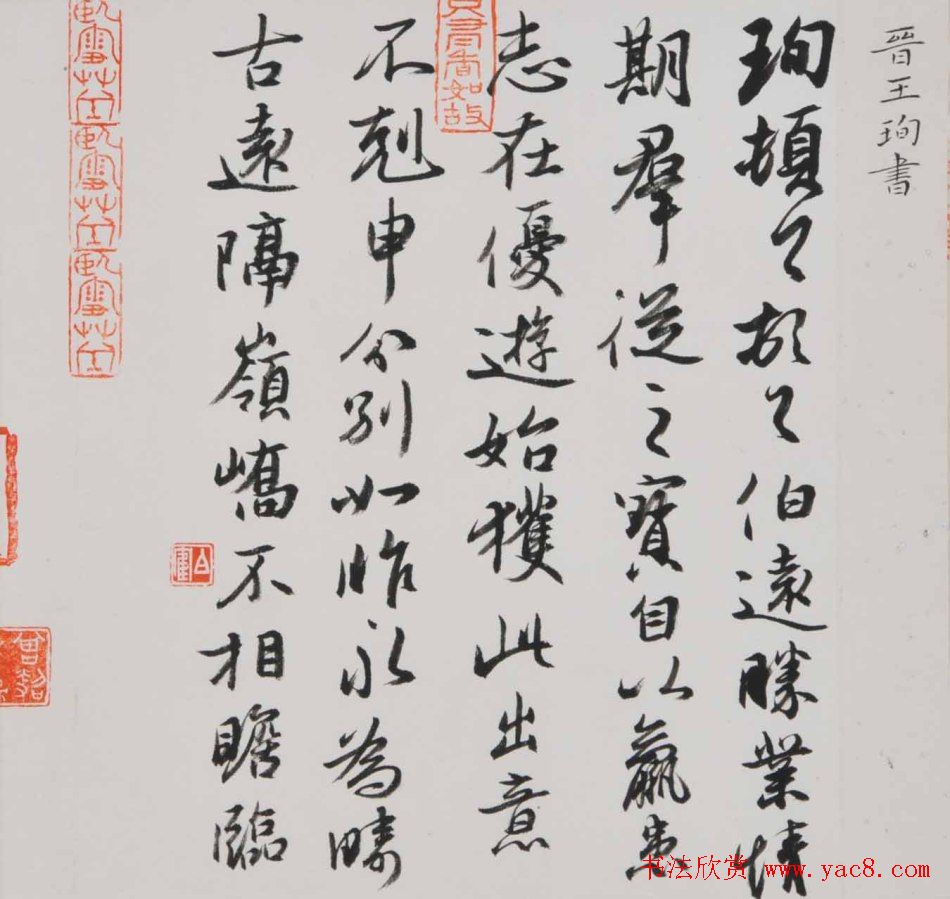 晉王珣書
珣頓首頓首伯遠勝業情
期羣從之寶自以羸患
志在優遊始獲此出意
不剋申分別如昨永為疇
古遠隔嶺嶠不相瞻臨
书法欣赏 www.yac8.com